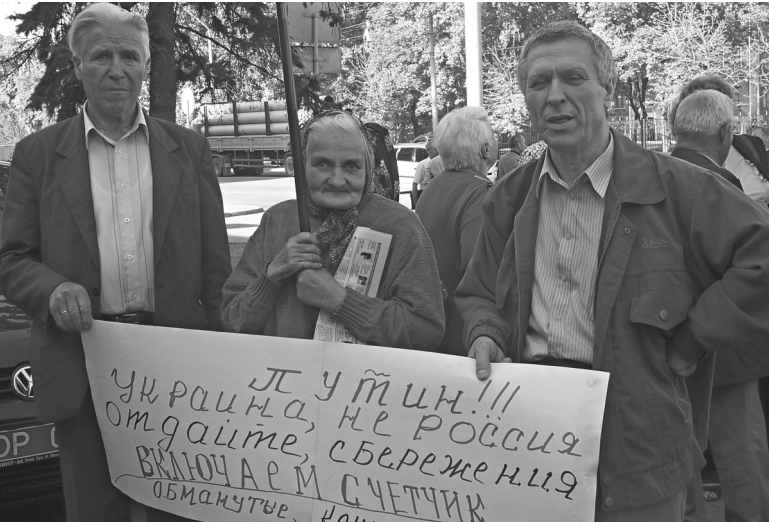 ПУТИН!!!
УКРАИНА, НЕ РОССИЯ
ОТДАЙТЕ, СБЕРЕЖЕНИЯ
ВКЛЮЧАЕМ СЧЕТЧИК
ОБМАНУТЫЕ,